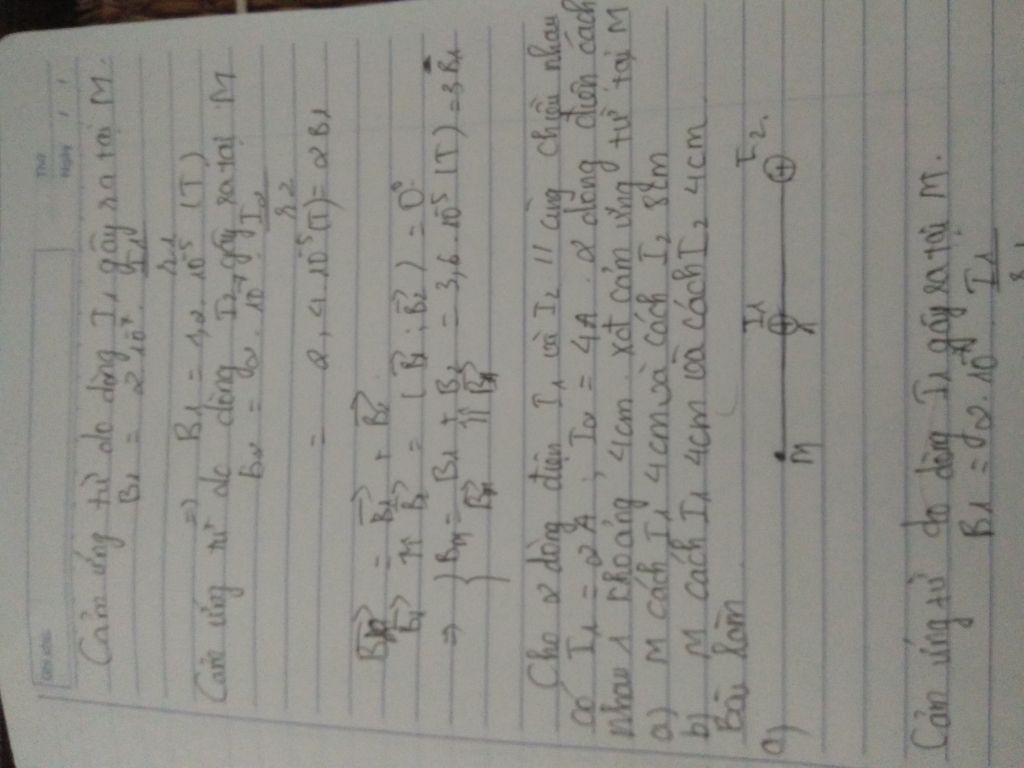 Thứ
Ngày / /
Cảm ứng từ do dòng I₁ gây ra tại M.
B₁ = 2.10⁻⁷. I₁/r₁
⇒ B₁ = 1,2.10⁻⁵ (T)
Cảm ứng từ do dòng I₂ gây ra tại M
B₂ = 2.10⁻⁷. I₂/r₂
= 2,4.10⁻⁵(T) = 2B₁
B⃗ₘ = B⃗₁ + B⃗₂
B⃗₁ ↑↑ B⃗₂ = (B⃗₁; B⃗₂) = 0°
⇒ { Bₘ = B₁ + B₂ = 3,6.10⁻⁵ (T) = 3B₁
B⃗ₘ ↑↑ B⃗₁
Cho 2 dòng điện I₁ và I₂ // cùng chiều nhau
có I₁ = 2A; I₂ = 4A. 2 dòng điện cách
nhau 1 khoảng 4cm. xđ cảm ứng từ tại M
a) M cách I₁ 4cm và cách I₂ 8cm
b) M cách I₁ 4cm và cách I₂ 4cm
Bài làm
a)
M I₁ I₂.
Cảm ứng từ do dòng I₁ gây ra tại M.
B₁ = 2.10⁻⁷. I₁